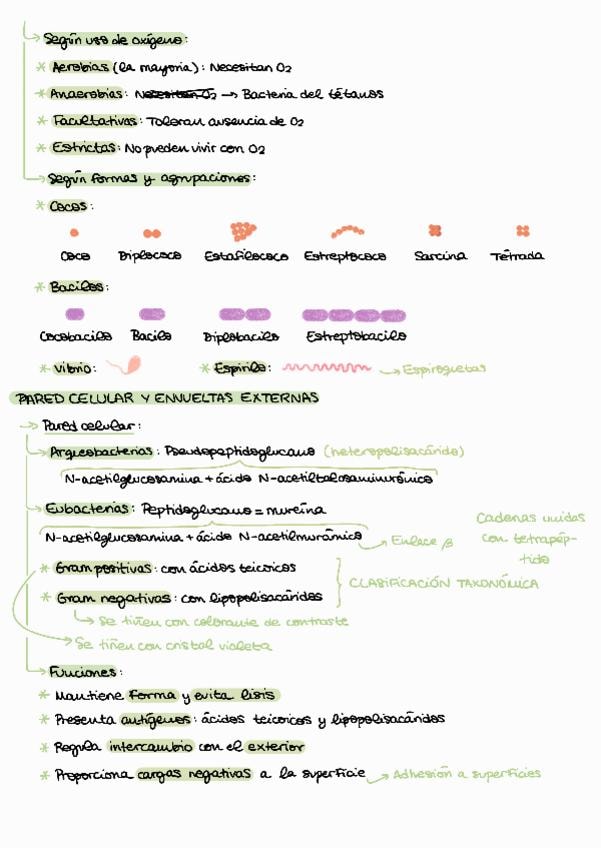 Según uso de oxígeno:
* Aerobias (la mayoría): Necesitan O2
* Anaerobias: Necesitan O2 → Bacteria del tétanos
* Facultativas: Toleran ausencia de O2
* Estrictas: No pueden vivir con O2
Según formas y agrupaciones:
* Cocos:
Coco Diplococo Estafilococo Estreptococo Sarcina Tétrada
* Bacilos:
Cocobacilo Bacilo Diplobacilo Estreptobacilo
* Vibrio: * Espirilo: → Espiroquetas
PARED CELULAR Y ENVUELTAS EXTERNAS
→ Pared celular:
→ Arqueobacterias: Pseudopeptidoglucano (heteropolisacárido)
N-acetilglucosamina + ácido N-acetiltalosaminurónico
→ Eubacterias: Peptidoglucano = mureína
N-acetilglucosamina + ácido N-acetilmurámico → Enlace β
Cadenas unidas
con tetrapép-
tido
* Gram positivas: con ácidos teicoicos
* Gram negativas: con lipopolisacáridos
CLASIFICACIÓN TAXONÓMICA
→ Se tiñen con colorante de contraste
→ Se tiñen con cristal violeta
→ Funciones:
* Mantiene forma y evita lisis
* Presenta antígenos: ácidos teicoicos y lipopolisacáridos
* Regula intercambio con el exterior
* Proporciona cargas negativas a la superficie → Adhesión a superficies